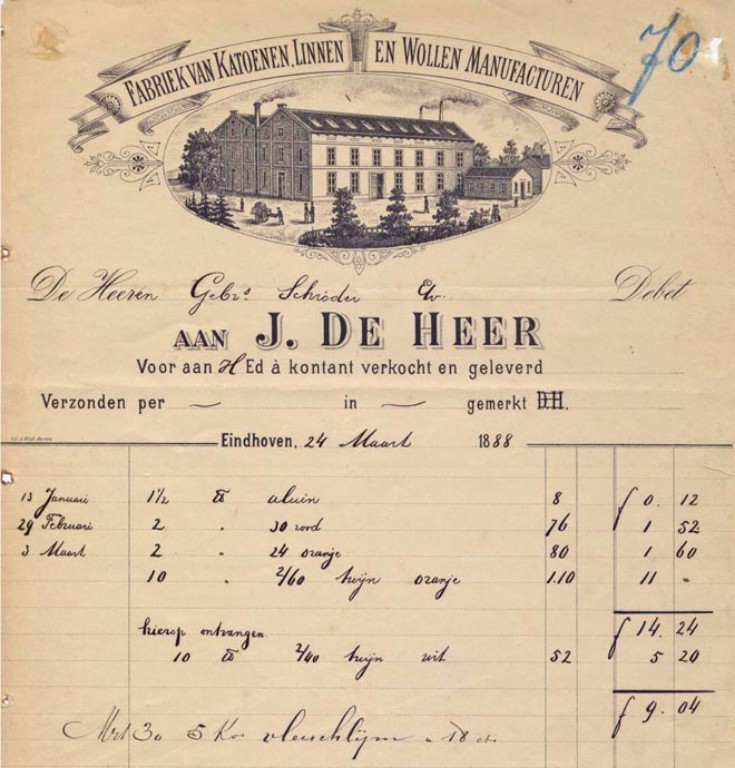 70
FABRIEK VAN KATOENEN, LINNEN EN WOLLEN MANUFACTUREN
De Heeren Gebrs. Schröder Ev. Debet
AAN J. DE HEER
Voor aan H Ed à kontant verkocht en geleverd
Verzonden per — in — gemerkt D.H.
Eindhoven, 24 Maart 1888
13 Januari 1½ ℔ aluin 8 f 0. 12
29 Februari 2 " 30 rood 76 1 52
3 Maart 2 " 24 oranje 80 1 60
10 " 2/60 twijn oranje 1.10 11 -
f 14. 24
hierop ontvangen
10 ℔ 2/40 twijn wit 52 5 20
f 9. 04
Mrt 30 5 Ko vleeschlijm a 18 ct